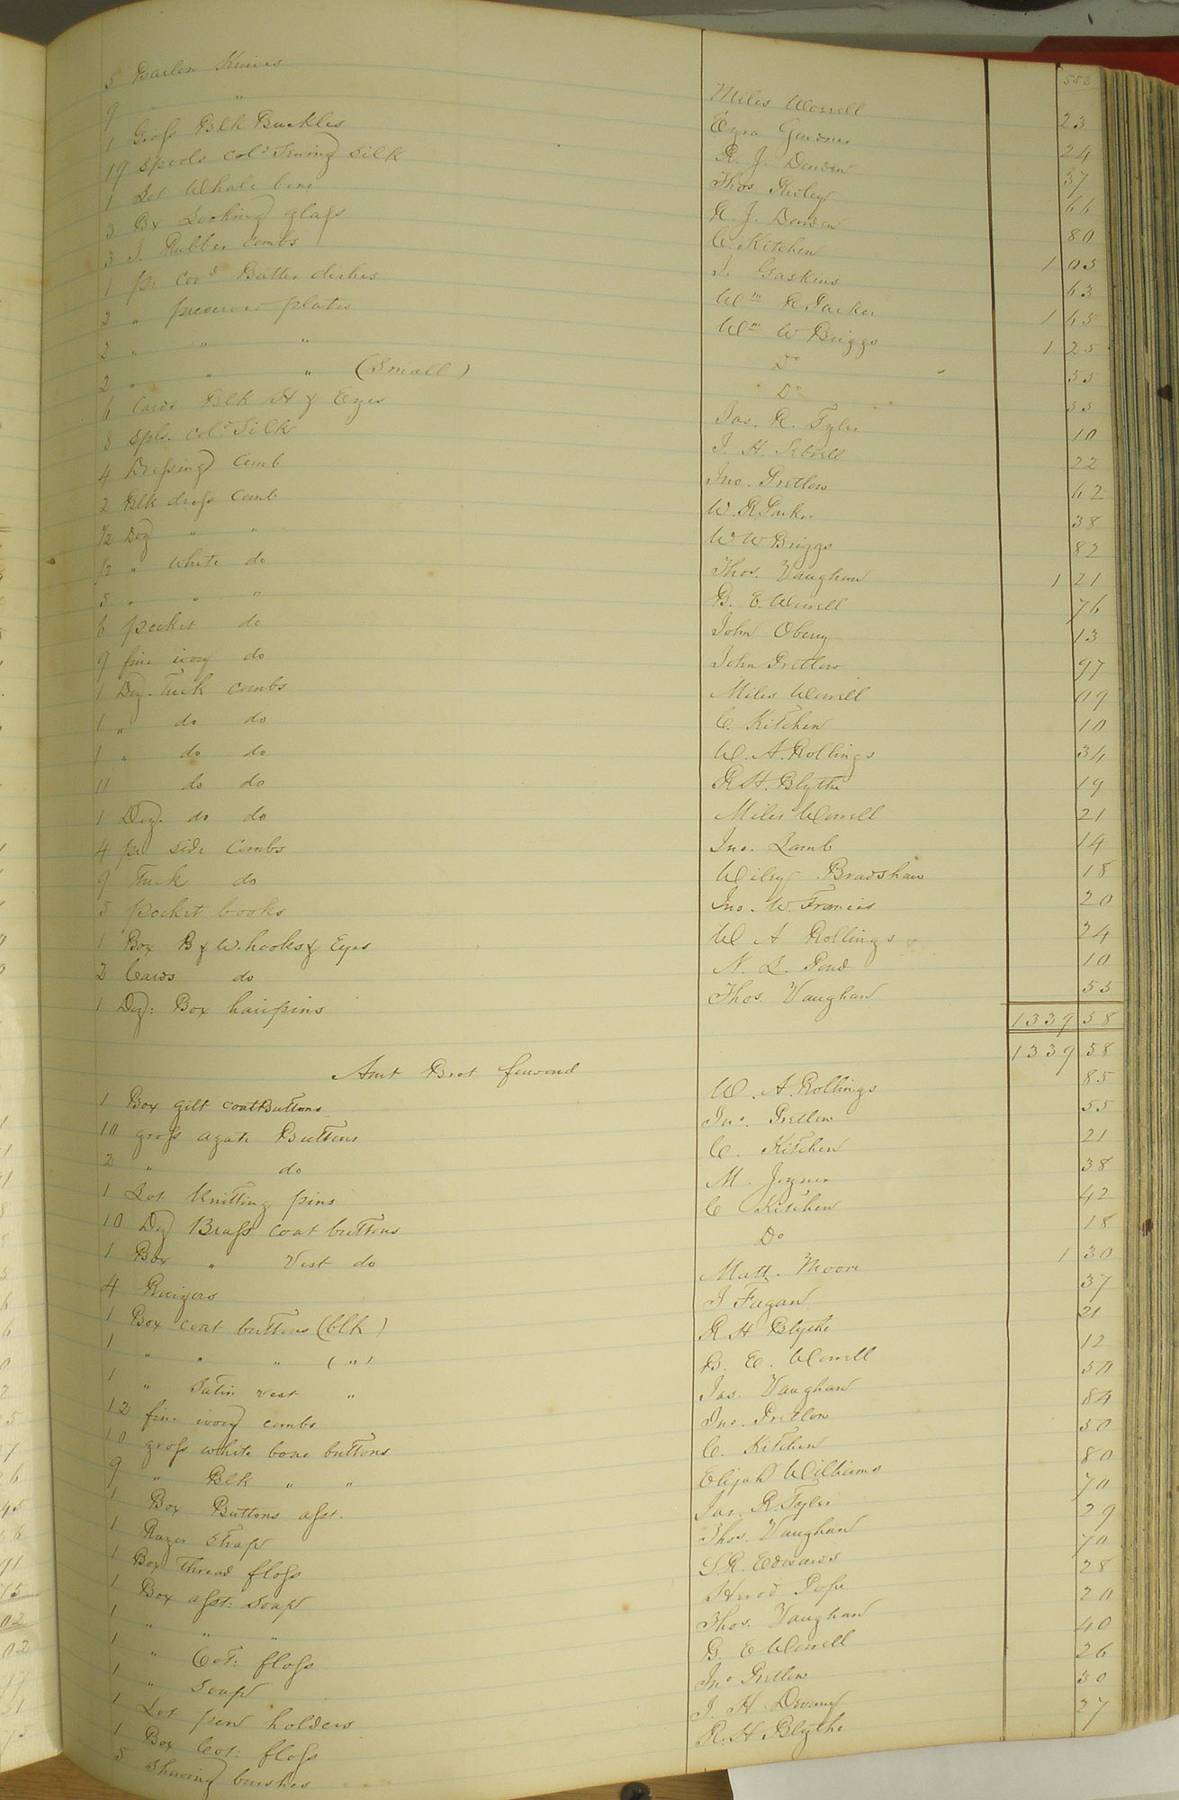 553
5 Barlow Knives Miles Worrell 23
9 " " Ezra Gardner 24
1 Groſs Blk Buckles R. J. Darden 37
19 Spools cold Sewing Silk Thos. Ridley 66
1 Lot Whale bone R. J. Darden 80
3 Bx Looking glaſs C. Kitchen 1 05
3 I. Rubber combs J. Gaskins 63
1 pr cov'd Butter dishes Wm R Parker 1 65
2 " preserve plates Wm W Briggs 1 25
2 " " " Do 55
2 " " " (Small) Do 35
6 Cards Blk H & Eyes Jas. R. Tyler 10
3 Spls. cold Silk J. H. Sebrell 22
4 Dreſsing Comb Jno. Pretlow 62
2 Blk dreſs Comb W. R Parker 38
1/2 Doz " " W W Briggs 82
1/2 " White do Thos. Vaughan 1 21
5 " " " B. E. Worrell 76
6 pocket do John Oberry 13
9 fine ivory do John Pretlow 97
1 Doz. Tuck combs Miles Worrell 09
1 " do do C. Kitchen 10
1 " do do W. A. Rollings 34
11 do do R. H. Blythe 19
1 Doz. do do Miles Worrell 21
4 pr side Combs Jno. Lamb 14
9 Tuck do Wiley Bradshaw 18
5 pocket books Jno. W. Francis 20
1 Box B & W. hooks & Eyes W A Rollings 24
2 Cards do N. L. Pond 10
1 Doz: Box hairpins Thos. Vaughan 55
1339 58
Amt Brot forward 1339 58
1 Box gilt coat Buttons W. A. Rollings 85
10 groſs agate Buttons Jno. Pretlow 55
2 " do C. Kitchen 21
1 Lot Knitting pins M. Joyner 38
10 Doz Braſs coat buttons C Kitchen 42
1 Box " Vest do Do 18
4 Razors Matt. Moore 1 30
1 Box coat buttons (blk) J Fagan 37
1 " " " ( " ) R H Blythe 21
1 " Satin vest " B. E. Worrell 12
12 fine ivory combs Jas. Vaughan 50
10 groſs white bone buttons Jno. Pretlow 84
9 " Blk " " C. Kitchen 50
1 Box Buttons aſst. Elijah Williams 80
1 Razor Strap Jas. R. Tyler 70
1 Box Thread floſs Thos. Vaughan 29
1 Box aſst: Soap S. R. Edwards 70
1 " " " Herod Pope 28
1 " Cot: floſs Thos. Vaughan 20
1 " Soap B. E Worrell 40
1 Lot pen holders Jno Pretlow 26
1 Box Cot: floſs J. H. Devany 30
5 Shaving brushes R. H. Blythe 27